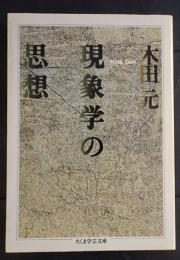 木田 元
Kida Gen
現象学の
思想
ちくま学芸文庫